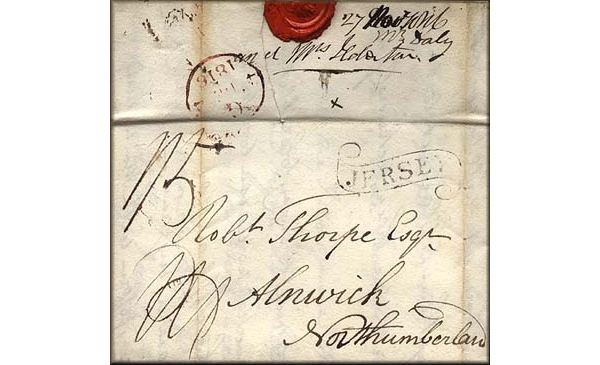 27 Nov 1816
Mr Daly
and Mrs Ilderton
1818
x
JERSEY
Robt. Thorpe Esqr
Alnwick
Northumberland